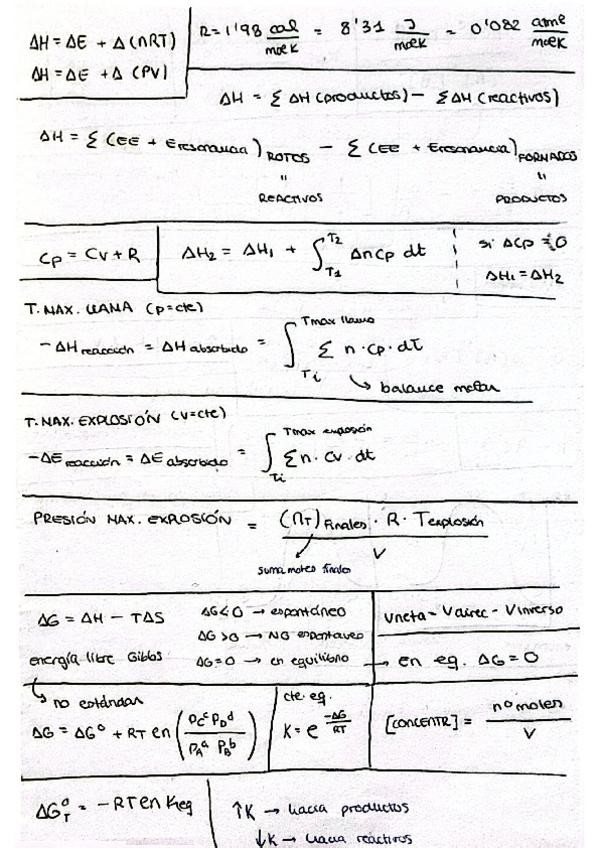 ΔH = ΔE + Δ(nRT)
ΔH = ΔE + Δ (PV)
R = 1'98 cal/molK = 8'31 J/molK = 0'082 atml/molK
ΔH = Σ ΔH (productos) - Σ ΔH (reactivos)
ΔH = Σ (EE + Eresonancia) ROTOS - Σ (EE + Eresonancia) FORMADOS
" "
REACTIVOS PRODUCTOS
Cp = Cv + R
ΔH₂ = ΔH₁ + ∫_{T1}^{T2} Δncp dt
si ΔCp = 0
ΔH₁ = ΔH₂
T. MAX. LLAMA (p=cte)
-ΔH reacción = ΔH absorbido = ∫_{Ti}^{Tmax llama} Σ n · cp · dT
↳ balance molar
T. MAX. EXPLOSIÓN (v=cte)
-ΔE reacción = ΔE absorbido = ∫_{Ti}^{Tmax explosión} Σ n · cv · dt
PRESIÓN MAX. EXPLOSIÓN = (nT) Finales · R · T explosión / V
suma moles finales
ΔG = ΔH - TΔS
energía libre Gibbs
ΔG<0 → espontáneo
ΔG >0 → NO espontaneo
ΔG=0 → en equilibrio → en eq. ΔG = 0
Vneta = Vdirec - Vinverso
↳ no estándar
ΔG = ΔG° + RT ln (Pc^c PD^d / PA^a PB^b)
cte. eq.
K = e^{-ΔG/RT}
[CONCENTR] = nº moles / V
ΔG°T = -RT ln Keq
↑K → hacia productos
↓K → hacia reactivos